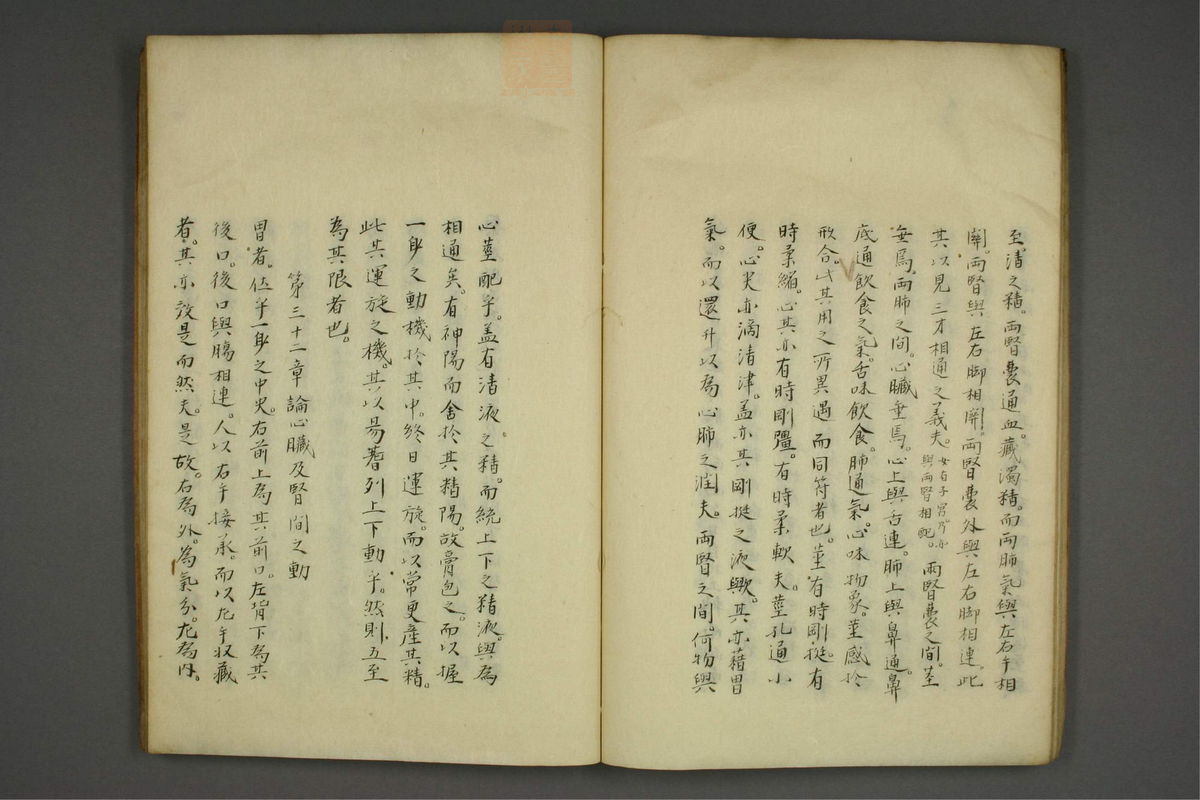 至清之精。兩腎囊通血。藏濁精。而兩肺氣與左右手相
關。兩腎與左右脚相關。兩腎囊外與左右脚相連。此
其以見三才相通之義夫。女有子宮乃亦與兩腎相配。兩腎囊之間。莖
垂焉。兩肺之間。心臟垂焉。心上與舌連。肺上與鼻通。鼻
底通飲食之氣。舌味飲食。肺通氣。心味物象。莖感於
形合。此其用之所異遇而同符者也。莖有時剛挺。有
時柔縮。心其亦有時剛彊。有時柔軟夫。莖孔通小
便。心尖亦滴清津。蓋亦其剛挺之液歟。其亦藉胃
氣。而以還升以為心肺之潤夫。兩腎之間。何物與
心莖配乎。蓋有清液之精。而統上下之精液。與為
相通矣。有神陽而舍於其精陽。故膏包之。而以握
一身之動機於其中。終日運旋。而以常更產其精。
此其運旋之機。其以昜著列上下動乎。然則五至
為其限者也。
第三十二章論心臟及腎間之動
胃者。位乎一身之中央。右前上為其前口。左背下為其
後口。後口與腸相連。人以右手接承。而以左手收藏
者。其亦效是而然夫。是故。右為外。為氣分。左為內。